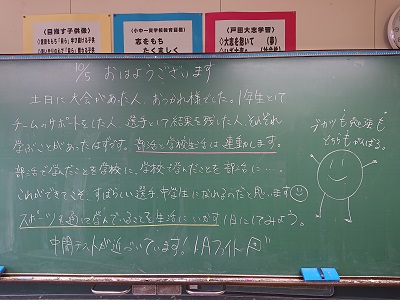 《目指す子供像》
小中一貫学校教育目標
志をもち
たくましく
《戸田大志学習》
◇大志を抱いて
10/5 おはようございます
土日に大会があった人、おつかれ様でした。1年生として
チームのサポートをした人、選手として結果を残した人、それぞれ
学ぶことがあったはずです。部活と学校生活は連動します。
部活で学んだことを学校に、学校で学んだことを部活に…。
これができてこそ、すばらしい選手、中学生になれるのだと思います
スポーツを通じて学んでいることを生活にいかす1日にしてみよう。
中間テストが近づいています！1Aファイト
ブカツも勉強も
どちらもがんばる。